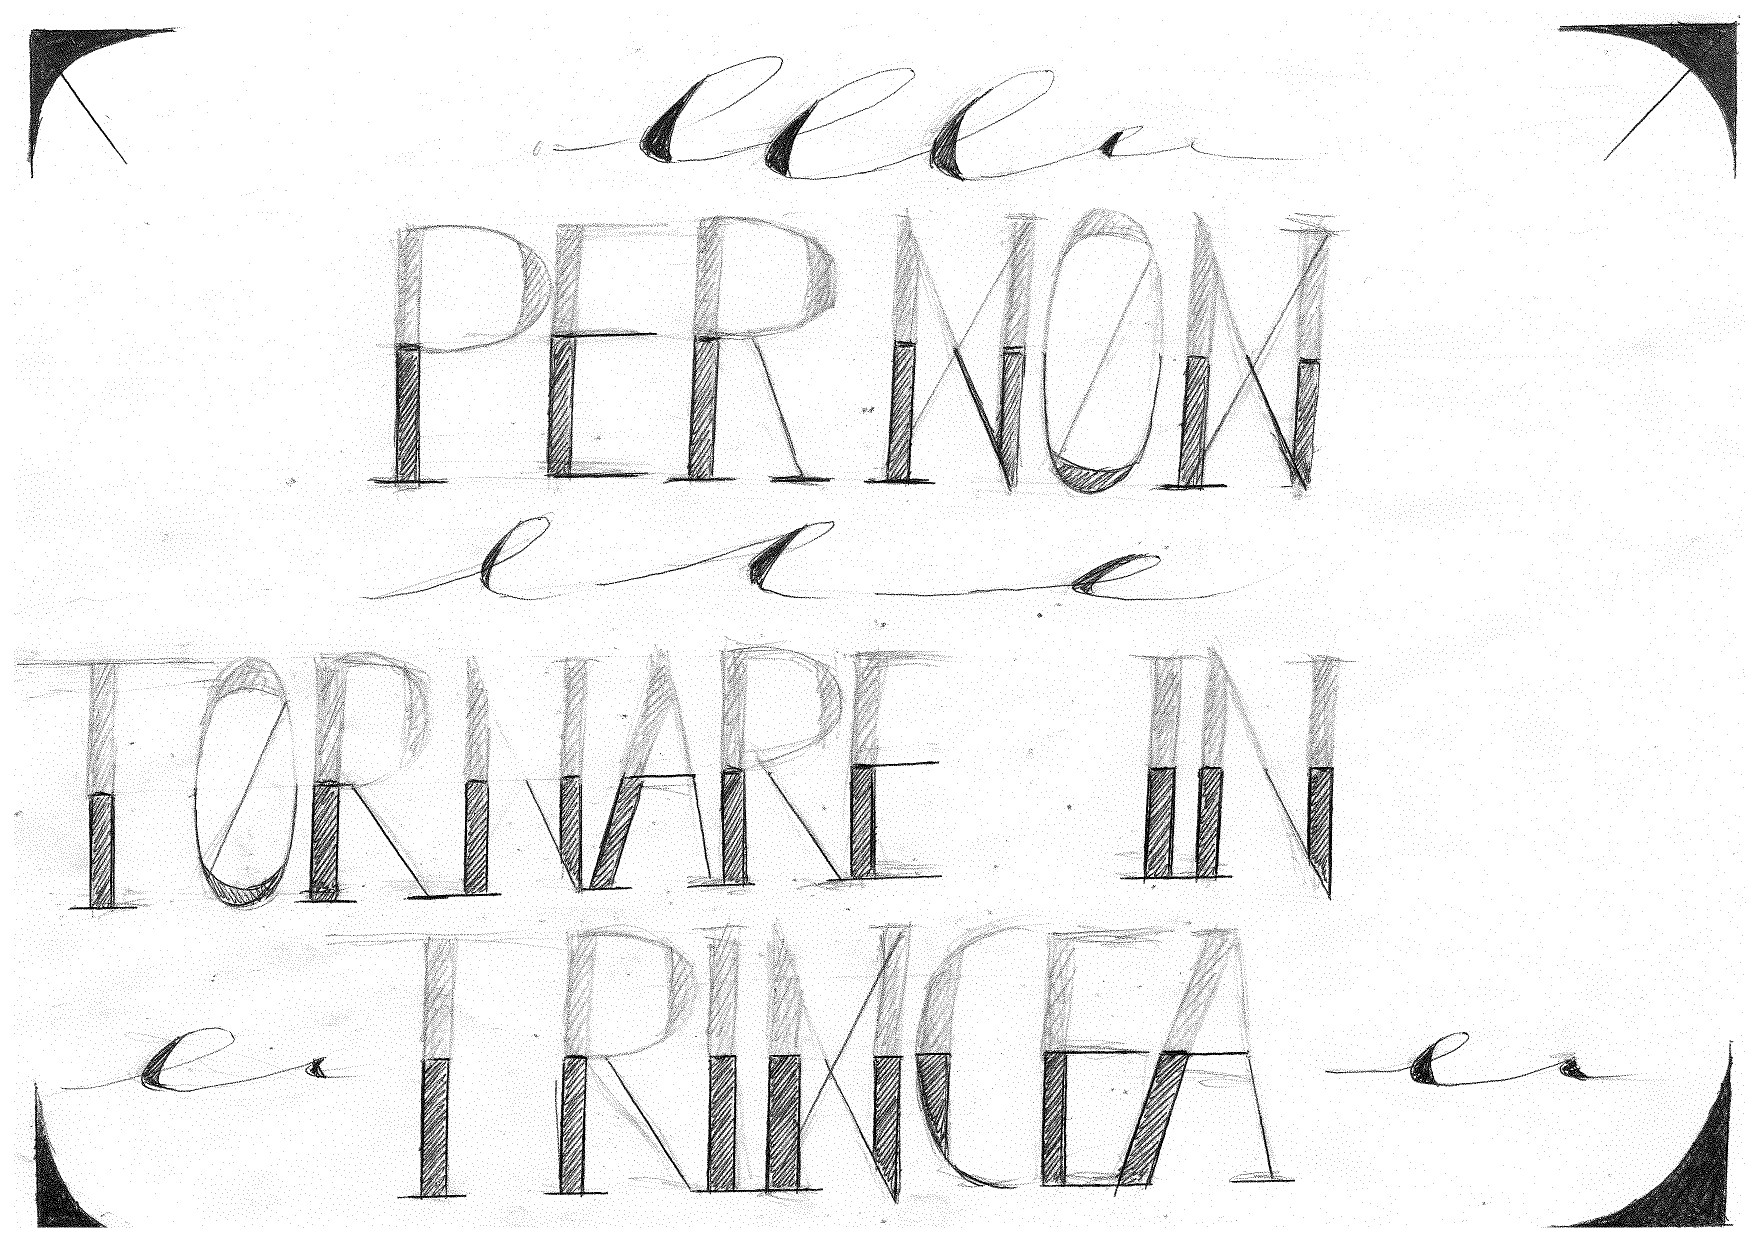 PER NON
TORNARE IN
TRINCEA